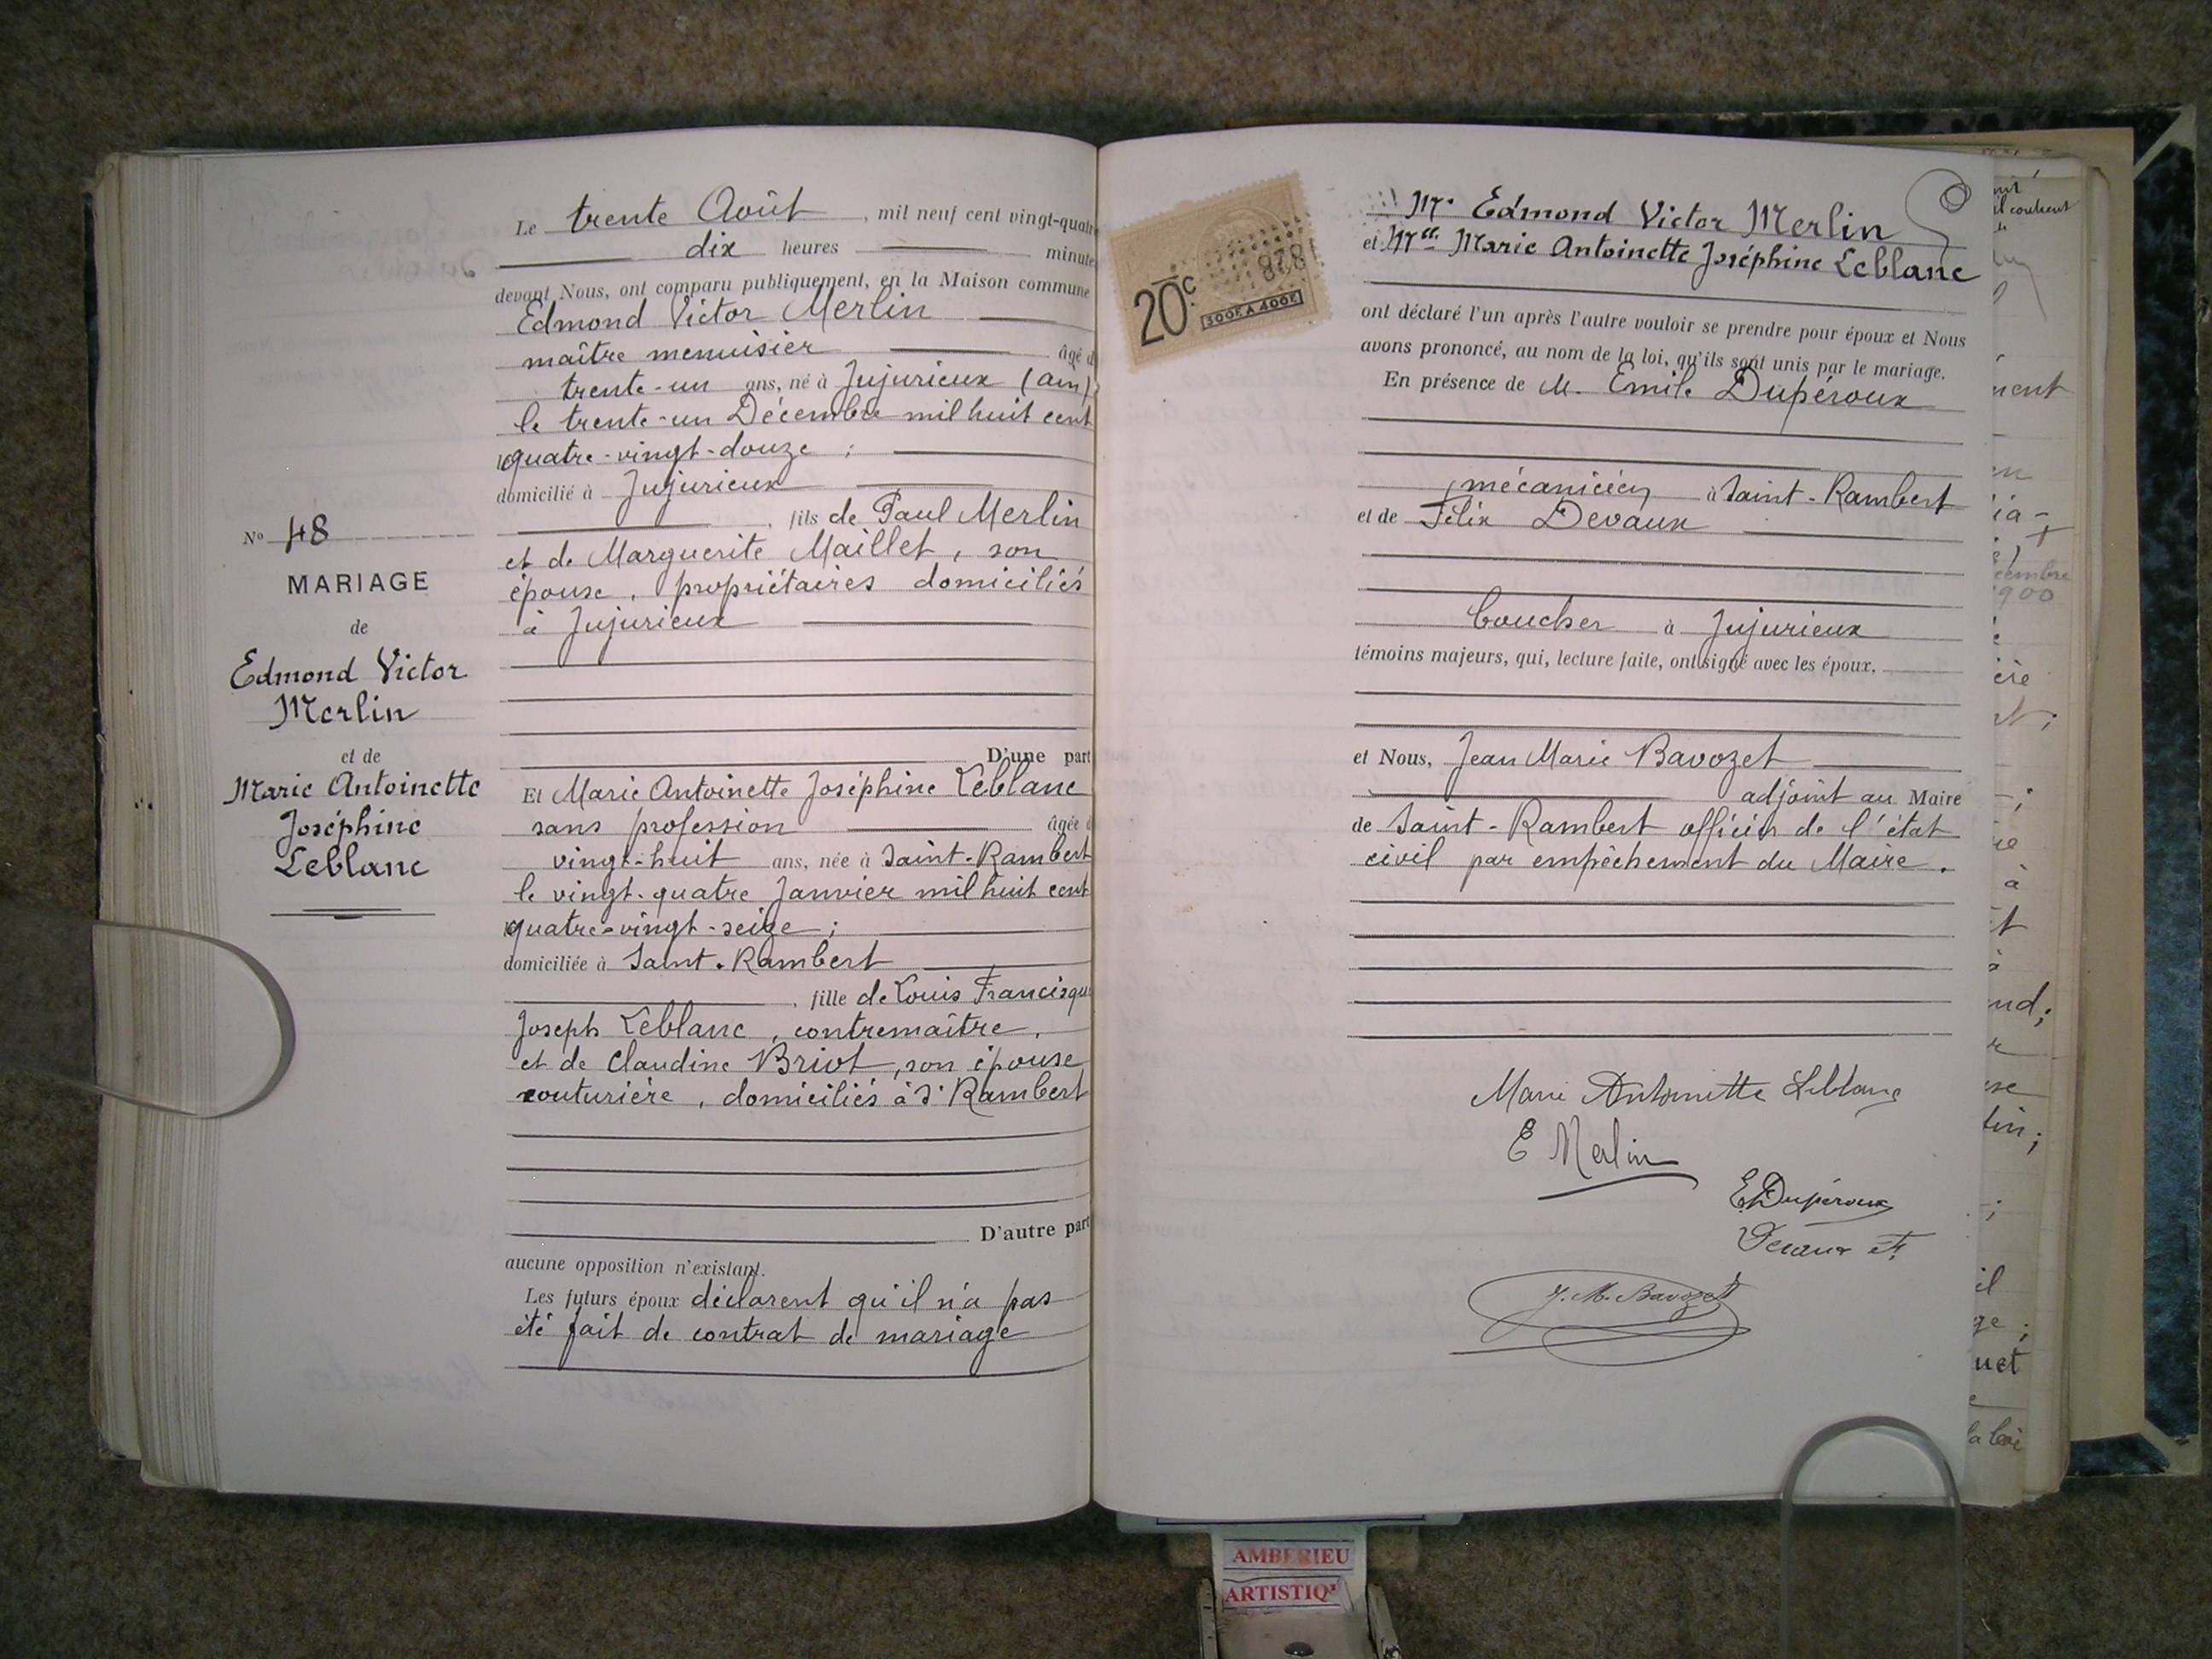 N° 48
MARIAGE
de
Edmond Victor
Merlin
et de
Marie Antoinette
Joséphine
Leblanc
Le trente Août, mil neuf cent vingt-quatre
dix heures minute
devant Nous, ont comparu publiquement, en la Maison commune
Edmond Victor Merlin
maître menuisier âgé d
trente-un ans, né à Jujurieux (Ain)
le trente-un Décembre mil huit cent
quatre-vingt-douze ;
domicilié à Jujurieux
, fils de Paul Merlin
et de Marguerite Maillet, son
épouse, propriétaires domiciliés
à Jujurieux
D'une part
Et Marie Antoinette Joséphine Leblanc
sans profession âgée d
vingt-huit ans, née à Saint-Rambert
le vingt-quatre Janvier mil huit cent
quatre-vingt-seize ;
domiciliée à Saint-Rambert
, fille de Louis Francisque
Joseph Leblanc, contremaître,
et de Claudine Briot, son épouse
couturière, domiciliés à St Rambert
D'autre part
aucune opposition n'existant.
Les futurs époux déclarent qu'il n'a pas
été fait de contrat de mariage
20c
300F A 400F
8781
828
Mr Edmond Victor Merlin
et Melle Marie Antoinette Joséphine Leblanc
ont déclaré l'un après l'autre vouloir se prendre pour époux et Nous
avons prononcé, au nom de la loi, qu'ils sont unis par le mariage.
En présence de M. Emile Dupéroux
mécanicien à Saint-Rambert
et de Félix Devaux
boucher à Jujurieux
témoins majeurs, qui, lecture faite, ont signé avec les époux,
et Nous, Jean Marie Bavozet
adjoint au Maire
de Saint-Rambert officier de l'état
civil par empêchement du Maire.
Marie Antoinette Leblanc
E Merlin
E. Dupéroux
J. M. Bavozet
AMBERIEU
ARTISTIQ